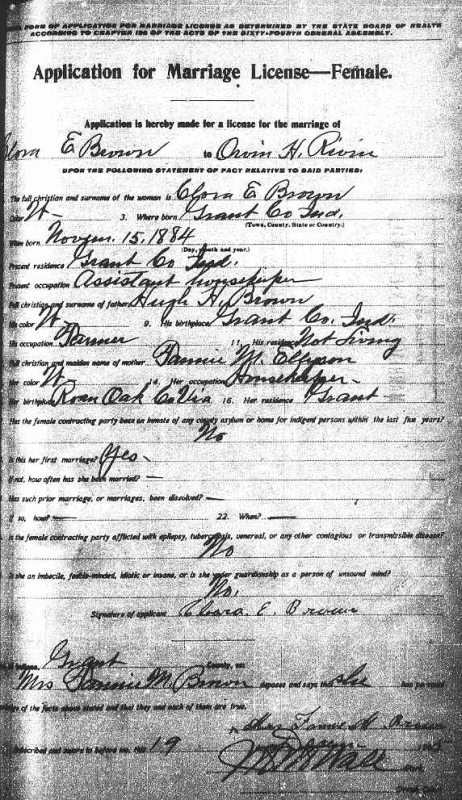 FORM OF APPLICATION FOR MARRIAGE LICENSE AS DETERMINED BY THE STATE BOARD OF HEALTH
ACCORDING TO CHAPTER 126 OF THE ACTS OF THE SIXTY-FOURTH GENERAL ASSEMBLY.
Application for Marriage License—Female.
Application is hereby made for a license for the marriage of
Clora E Brown to Orvin H.
UPON THE FOLLOWING STATEMENT OF FACT RELATIVE TO SAID PARTIES:
The full christian and surname of the woman is Clora E Brown
Color W 3. Where born Grant Co Ind.
(Town, County, State or Country.)
When born Novem. 15, 1884
(Day, month and year.)
Present residence Grant Co Ind.
Present occupation Assistant housekeeper
Full christian and surname of father Hugh H. Brown
His color W 9. His birthplace Grant Co. Ind.
His occupation Farmer 11. His residence Not Living
Full christian and maiden name of mother Fannie M. Ellyson
Her color W 14. Her occupation Housekeeper
Her birthplace Roan Oak Co Via 16. Her residence Grant
Has the female contracting party been an inmate of any county asylum or home for indigent persons within the last five years?
No
Is this her first marriage? Yes
If not, how often has she been married?
Has such prior marriage, or marriages, been dissolved?
If so, how? 22. When?
Is the female contracting party afflicted with epilepsy, tuberculosis, venereal, or any other contagious or transmissible disease?
No
Is she an imbecile, feeble-minded, idiotic or insane, or is she under guardianship as a person of unsound mind?
No.
Signature of applicant Clora. E. Brown
Indiana, Grant County, ss:
Mrs Fannie M. Brown deposes and says that she has personal
knowledge of the facts above stated and that they and each of them are true.
Mrs Fannie M. Brown
Subscribed and sworn to before me, this 19
Wall
Clerk